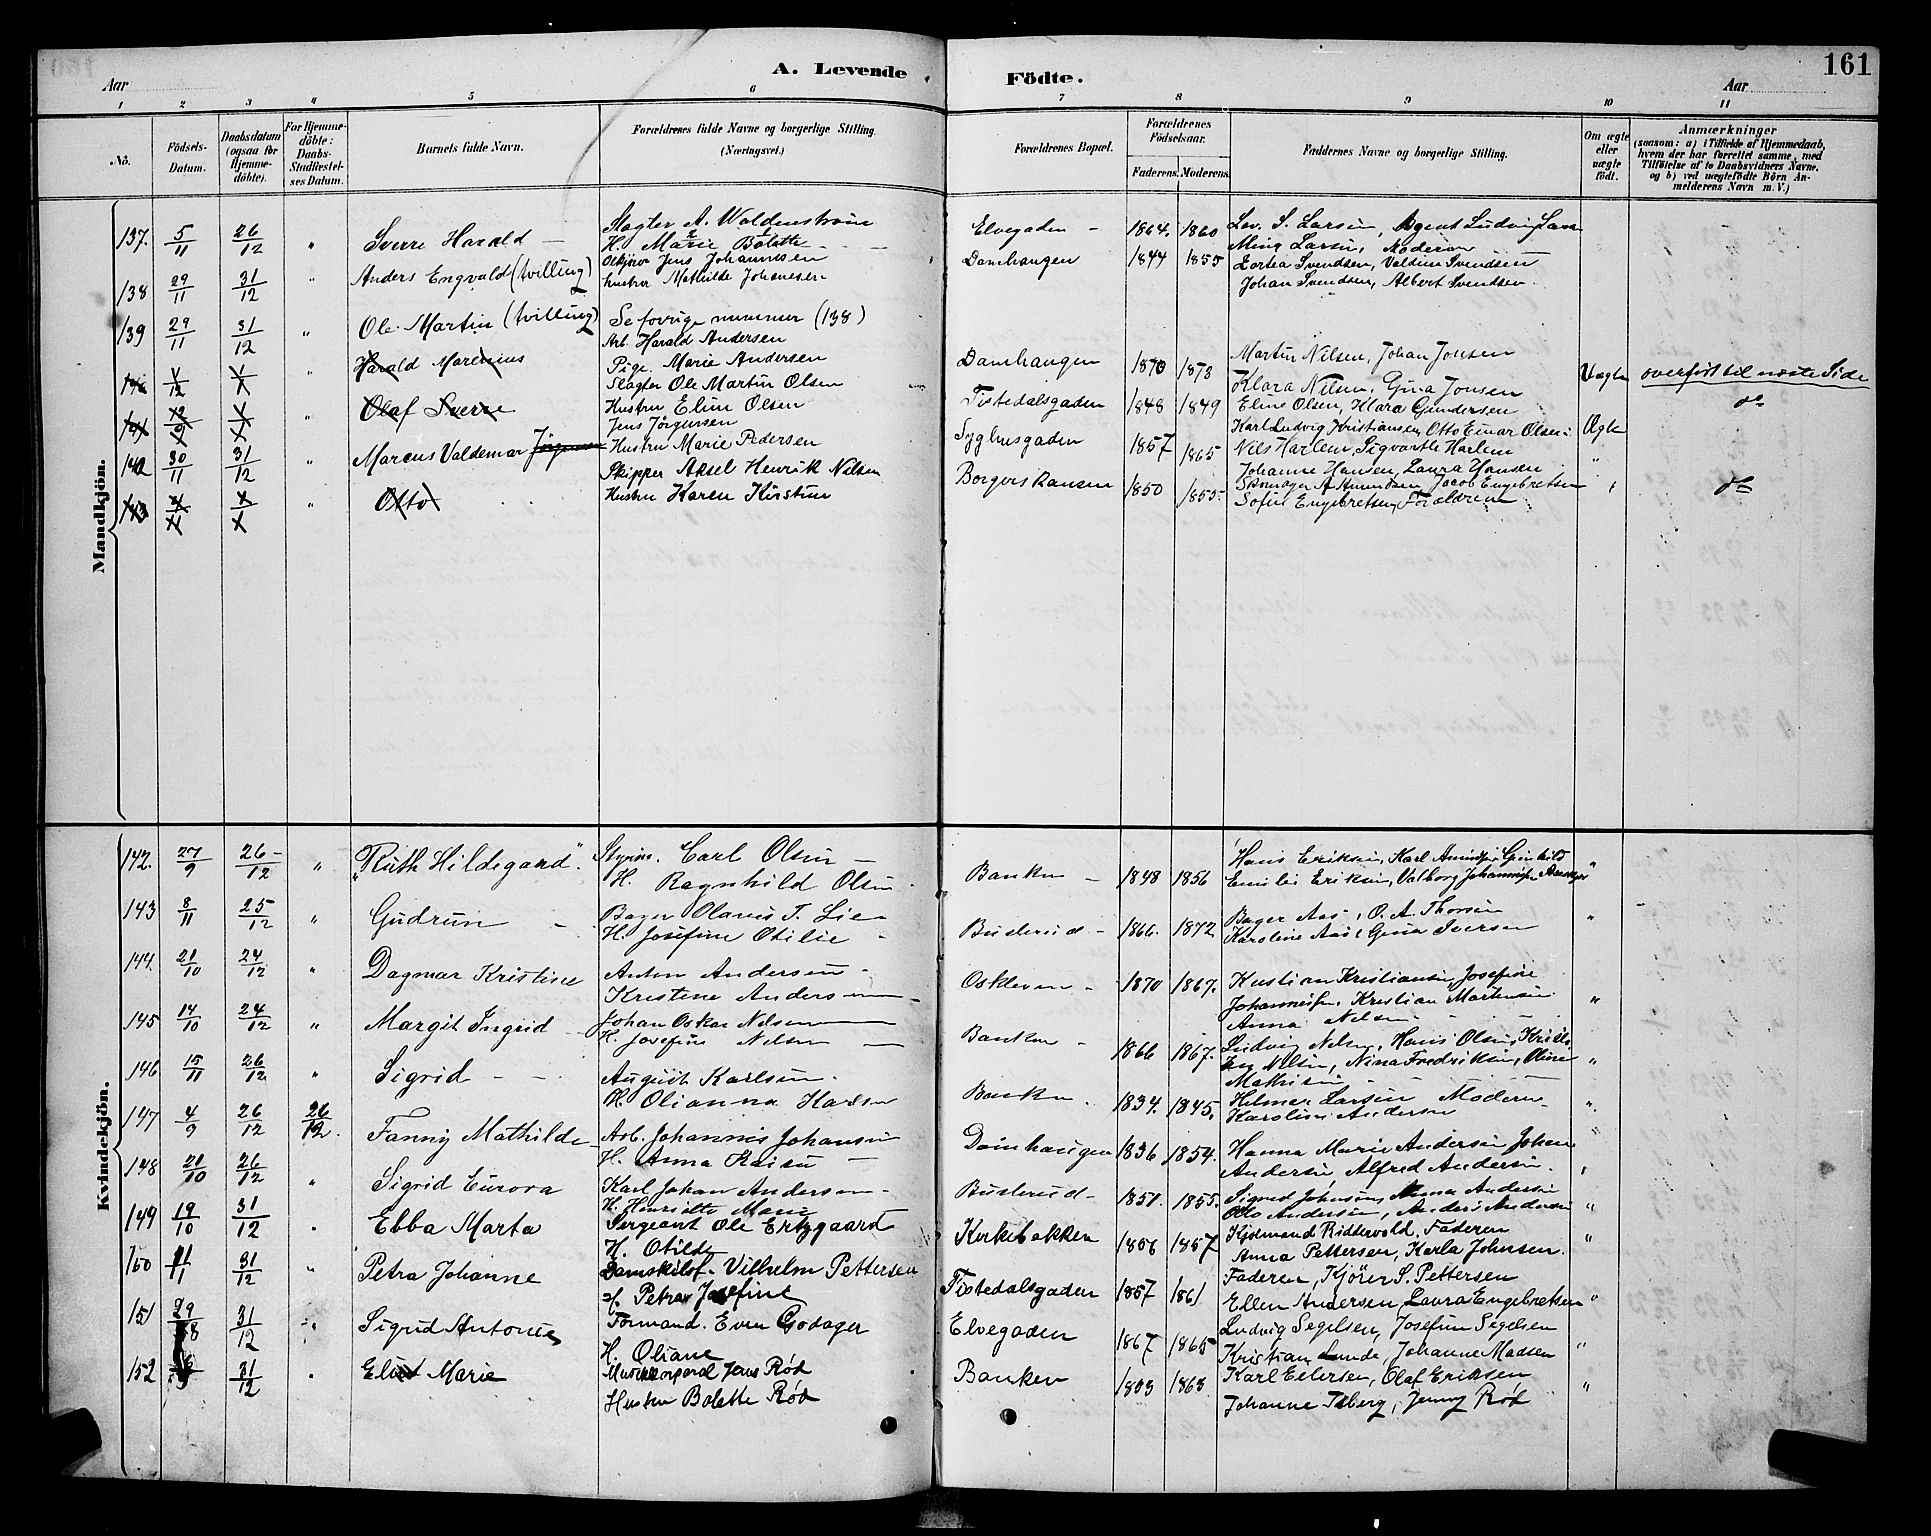 A. Levende Födte.
161
Aar
Aar
1 2 3 4 5 6 7 8 9 10 11
No.
Födsels-Datum.
Daabsdatum (ogsaa for Hjemme-döbte).
For Hjemme-döbte: Daabs-Stadfæstel-ses Datum.
Barnets fulde Navn.
Forældrenes fulde Navne og borgerlige Stilling. (Næringsvei.)
Forældrenes Bopæl.
Forældrenes Födselsaar.
Faderens. Moderens.
Faddernes Navne og borgerlige Stilling.
Om ægte eller uægte födt.
Anmærkninger
(saasom: a) i Tilfælde af Hjemmedaab, hvem der har forrettet samme, med Tilföielse af to Daabsvidners Navne, og b) ved uægtefödte Börn Anmelderens Navn m. V.)
Mandkjön.
137. 5/11 26/12 " Sverre Harald – Slagter A. Waldenstrøm
H. Marie Bolette
Elvegaden – 1864. 1860 Lov. S. Larsen, Agent Ludvig
Larsen, Moderen
138 29/11 31/12 " Anders Engvald (tvilling) Jens Johannesen
hustru Mathilde Johanesen
Damhaugen 1844 1855 Svendsen, Valdine Svendsen
Johan Svendsen, Albert Svendsen.
139 29/11 31/12 " Ole Martin (tvilling) Se forrige nummer (138)
Harald Marenius Arb. Harald Andersen
Pige Marie Andersen
Damhaugen 1870 1873 Martin Nilsen, Johan Jonsen
Klara Nilsen, Gina Jonsen
Uægte overført til næste Side
Olaf Sverre Slagter Ole Martin Olsen
Hustru Eline Olsen
Tistedalsgaden 1848 1849 Eline Olsen, Klara Gundersen
Karl Ludvig Kristiansen, Otto Einar Olsen
Ægte do
142 30/11 31/12 " Marcus Valdemar Jørgensen Jens Jörgensen
Hustru Marie Pedersen
Syghusgaden 1857 1865 Nils Harlem, Sigvarth Harlem
Johanne Hansen, Laura Hansen
"
143 " Otto Skipper Aksel Henrik Nilsen
Hustru Karen Kirstine
Borgerskansen 1850 1855 Skomager A. Amundsen, Jacob Engebretsen
Sofie Engebretsen, Forældrene
" do
Kvindekjön.
142. 27/9 26/12 " "Ruth Hildegard". Styrm. Carl Olsen –
H. Ragnhild Olsen
Banken – 1848 1856 Hans Eriksen, Karl
Emilie Eriksen, Valborg
"
143 8/11 25/12 " Gudrun – Bager Olavus T. Lie –
H. Josefine Otilie –
Buslerud – 1866. 1872 Bager Aas, O. A. Thorsen
Karoline Aas, Gina Iversen
"
144. 21/10 24/12 " Dagmar Kristine Anton Andersen –
Kristine Andersen –
Oskleven – 1870 1867. Kristian Kristiansen, Josefine
Johannesen, Kristian Martinsen
Anna Nilsen
"
145 14/10 24/12 " Margit Ingrid Johan Oskar Nilsen
H. Josefine Nilsen –
Banken – 1866 1867. Ludvig Nilsen, Hans Olsen,
Nilsen, Nina Fredriksen, Oline
Mathisen
"
146 15/11 26/12 " Sigrid – – August Karlsen.
H. Olianna Karlsen
Banken. 1834. 1845. Helmer Larsen Moderen
Karoline Andersen
"
147 4/9 26/12 26/12. Fanny Mathilde Arb. Johannes Johansen
H. Anna Kaisa –
Damhaugen 1836 1854. Hanna Marie Andersen, Johan
Andersen, Alfred Andersen.
"
148 21/10 26/12 " Sigrid Eurora Karl Johan Andersen –
H. Henriette Marie
Buslerud – 1851. 1855. Sigurd Johnsen, Anna Andersen
Otto Andersen, Anders Andersen
"
149 19/10 31/12 " Ebba Marta Sergeant Ole Ertzgaard
H. Otilde
Kirkebakken 1856 1857 Kjøbmand Riddervold, Faderen
Anna Pettersen, Karla Johnsen.
"
150 11/1 31/12 " Petra Johanne Vilhelm Pettersen
H. Petra Josefine
Tistedalsgaden 1857 1861 Faderen, Kjörer S. Pettersen
Ellen Andersen, Laura Engebretsen
"
151 29/8 31/12 " Sigrid Antonie Formand. Even Godager
H. Oliane
Elvegaden 1867 1865 Ludvig Segelsen, Josefine Segelsen
Kristian Lunde, Johanne Madsen
"
152 31/12 " Marie Jens Rød
Hustru Bolette Rød
Banken 1863 1863 Karl Eilersen, Olaf Eriksen
Johanne Isberg, Jenny Rød
"